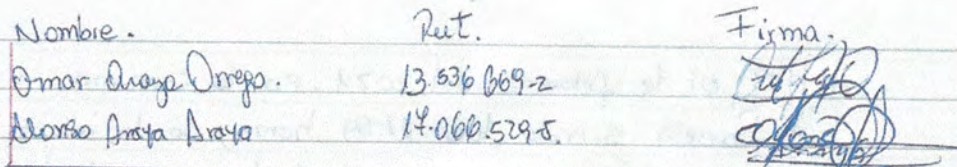 Nombre. Rut. Firma.
Omar Araya Orrego. 13.536.669-2
Alonso Araya Araya 17.066.529-5.